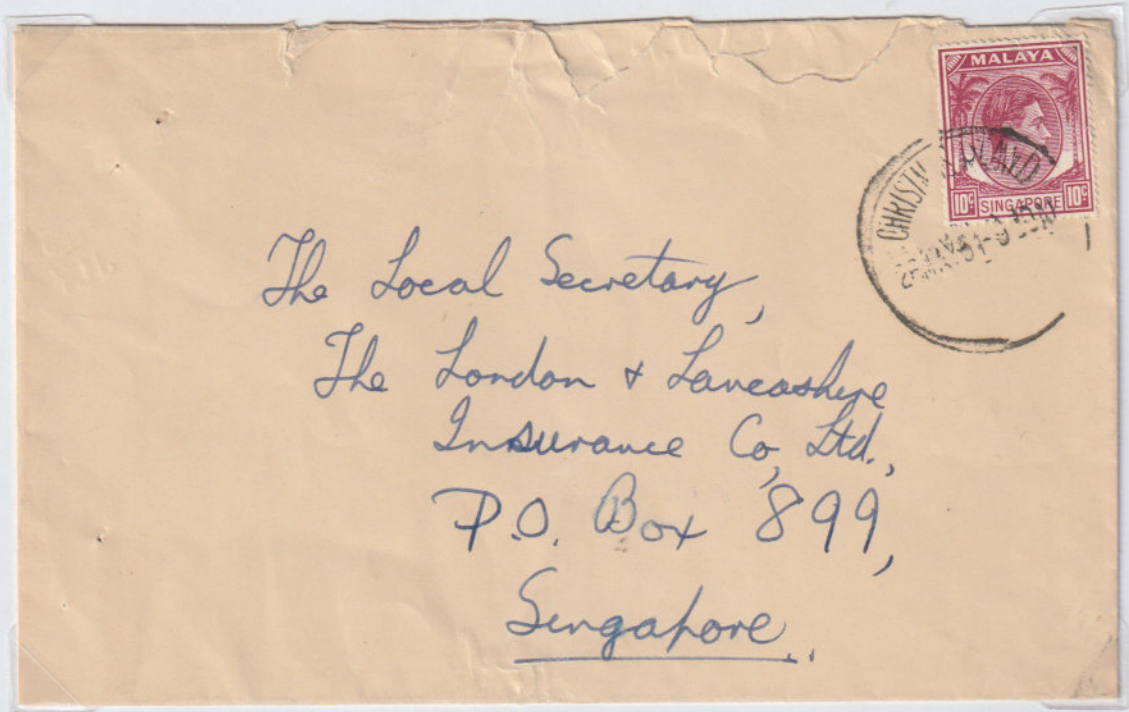 MALAYA
10c SINGAPORE 10c
The Local Secretary,
The London & Lancashire
Insurance Co, Ltd.,
P.O. Box 899,
Singapore.